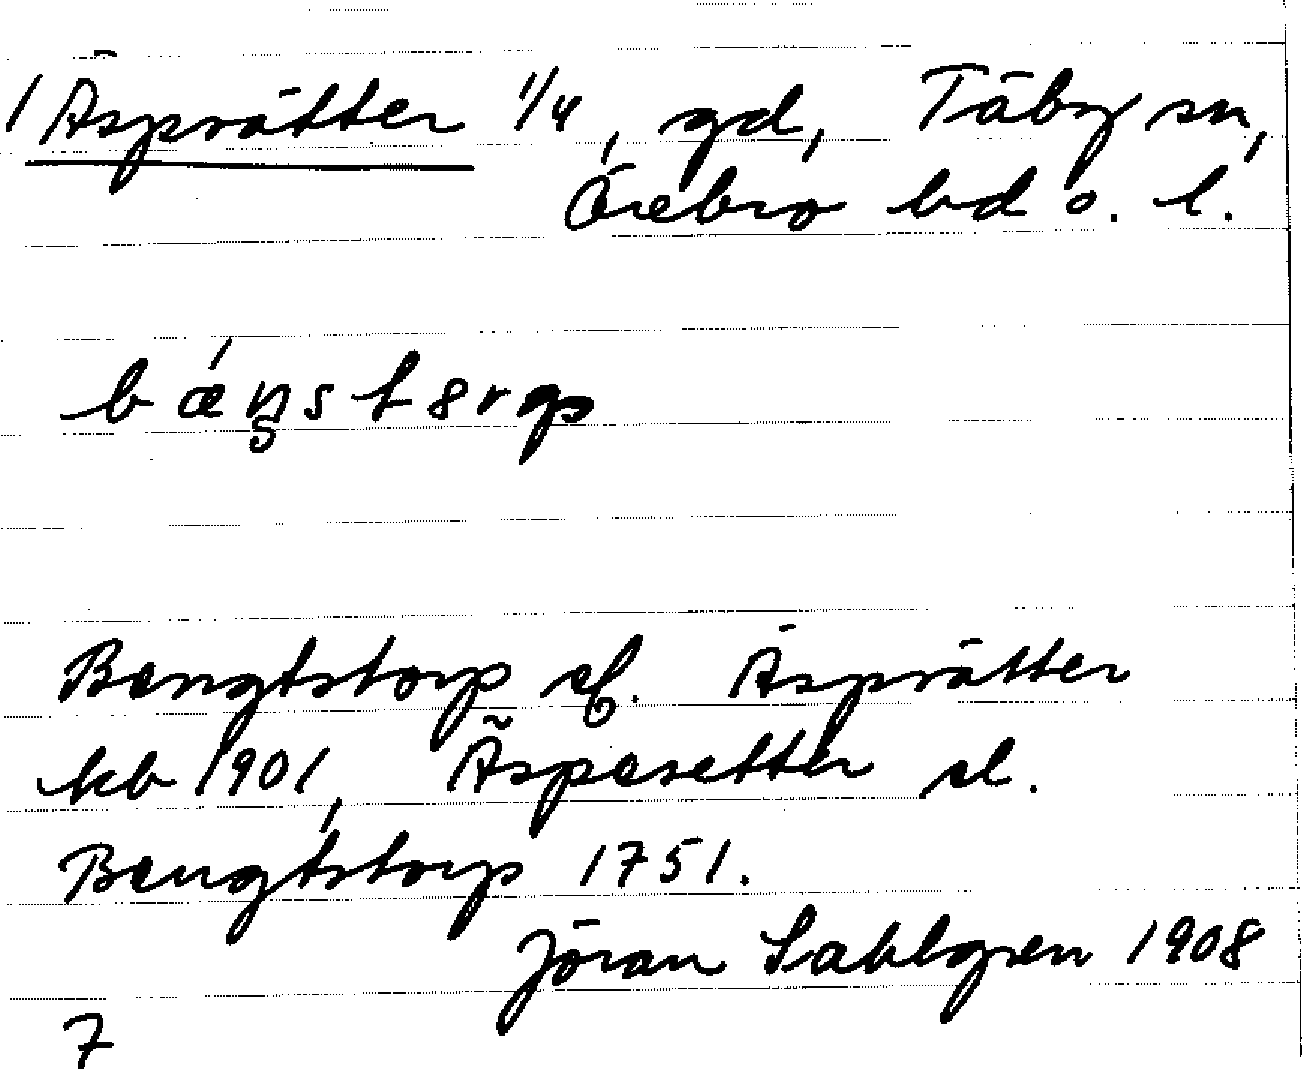 1 Äsprätter 1/4, gd, Täby sn,
Örebro hd o. l.
bǽŋstɵrp
Bengtstorp el. Äsprätter
kb 1901, Äspesetter el.
Bengtstorp 1751.
Jöran Sahlgren 1908
7